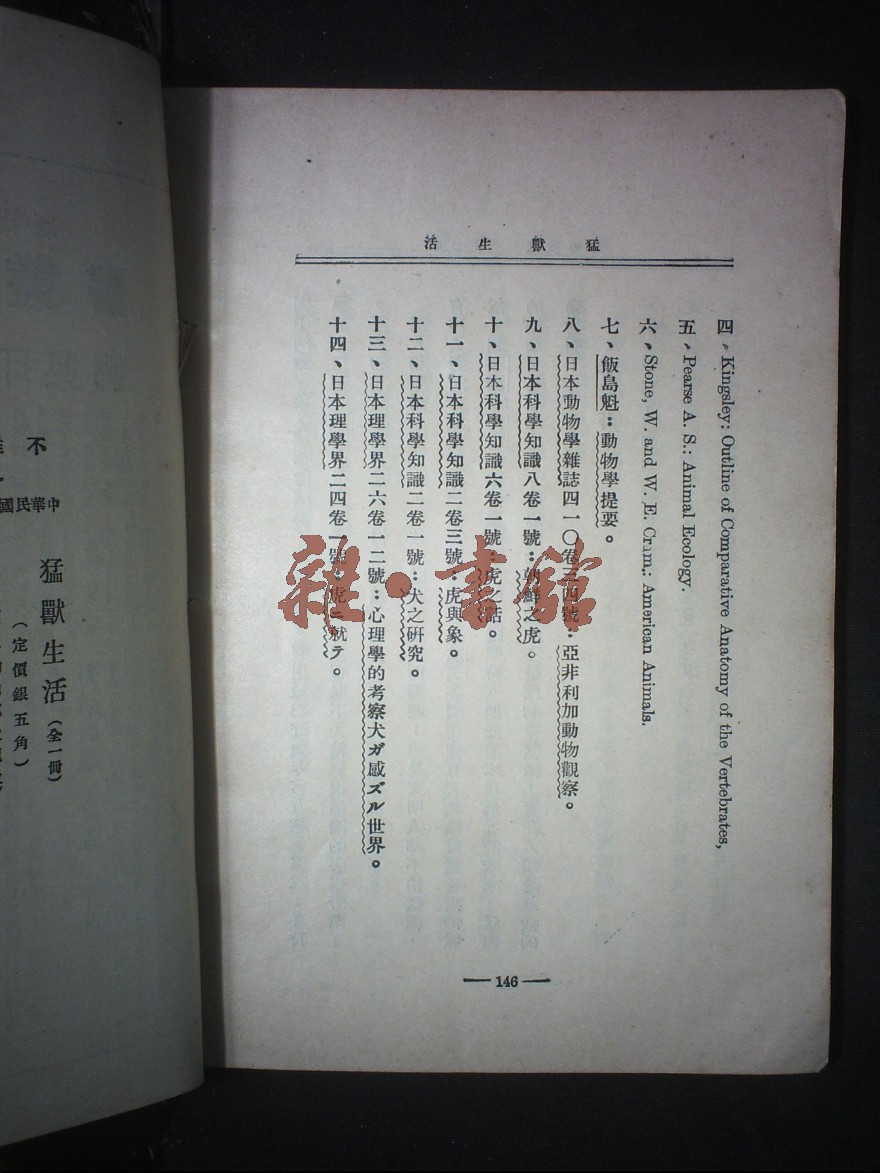 猛獸生活
四、Kingsley: Outline of Comparative Anatomy of the Vertebrates,
五、Pearse A. S.: Animal Ecology.
六、Stone, W. and W. E. Cram,: American Animals.
七、飯島魁：動物學提要。
八、日本動物學雜誌四一〇卷三四號：亞非利加動物觀察。
九、日本科學知識八卷一號：朝鮮之虎。
十、日本科學知識六卷一號：虎之話。
十一、日本科學知識二卷三號：虎與象。
十二、日本科學知識二卷一號：犬之研究。
十三、日本理學界二六卷一二號：心理學的考察犬ガ感ズル世界。
十四、日本理學界二四卷一號：虎ニ就テ。
— 146 —
雜·書館
不
中華民國
猛獸生活（全一冊）
（定價銀五角）